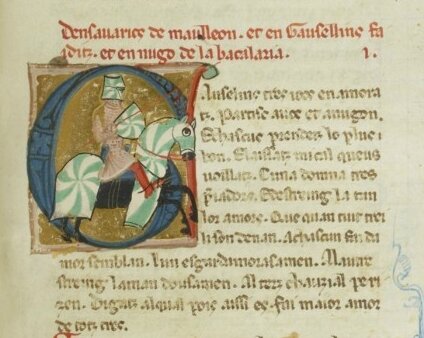 Densauaric de mauleon. et en Gauselline fa
aditz. et en nugo de la bacalaria. I.
Auselins tres iocs en amora
tz. Partisc auos et anugon.
Echascus prendetz lo plus
bon. E laissatz mical queus
uoillatz. Cuna domna tres
preiadors. E destreing la tan
lor amors. Que quan tuit trei
li son denan. Achascun fai da
mor semblan. Lun esgard amorosamen. Al autre
streing la man dousamen. Al tertz caucial pe ri
zen. Digatz al qual pois aissi es. fai maior amor
de totz tres.